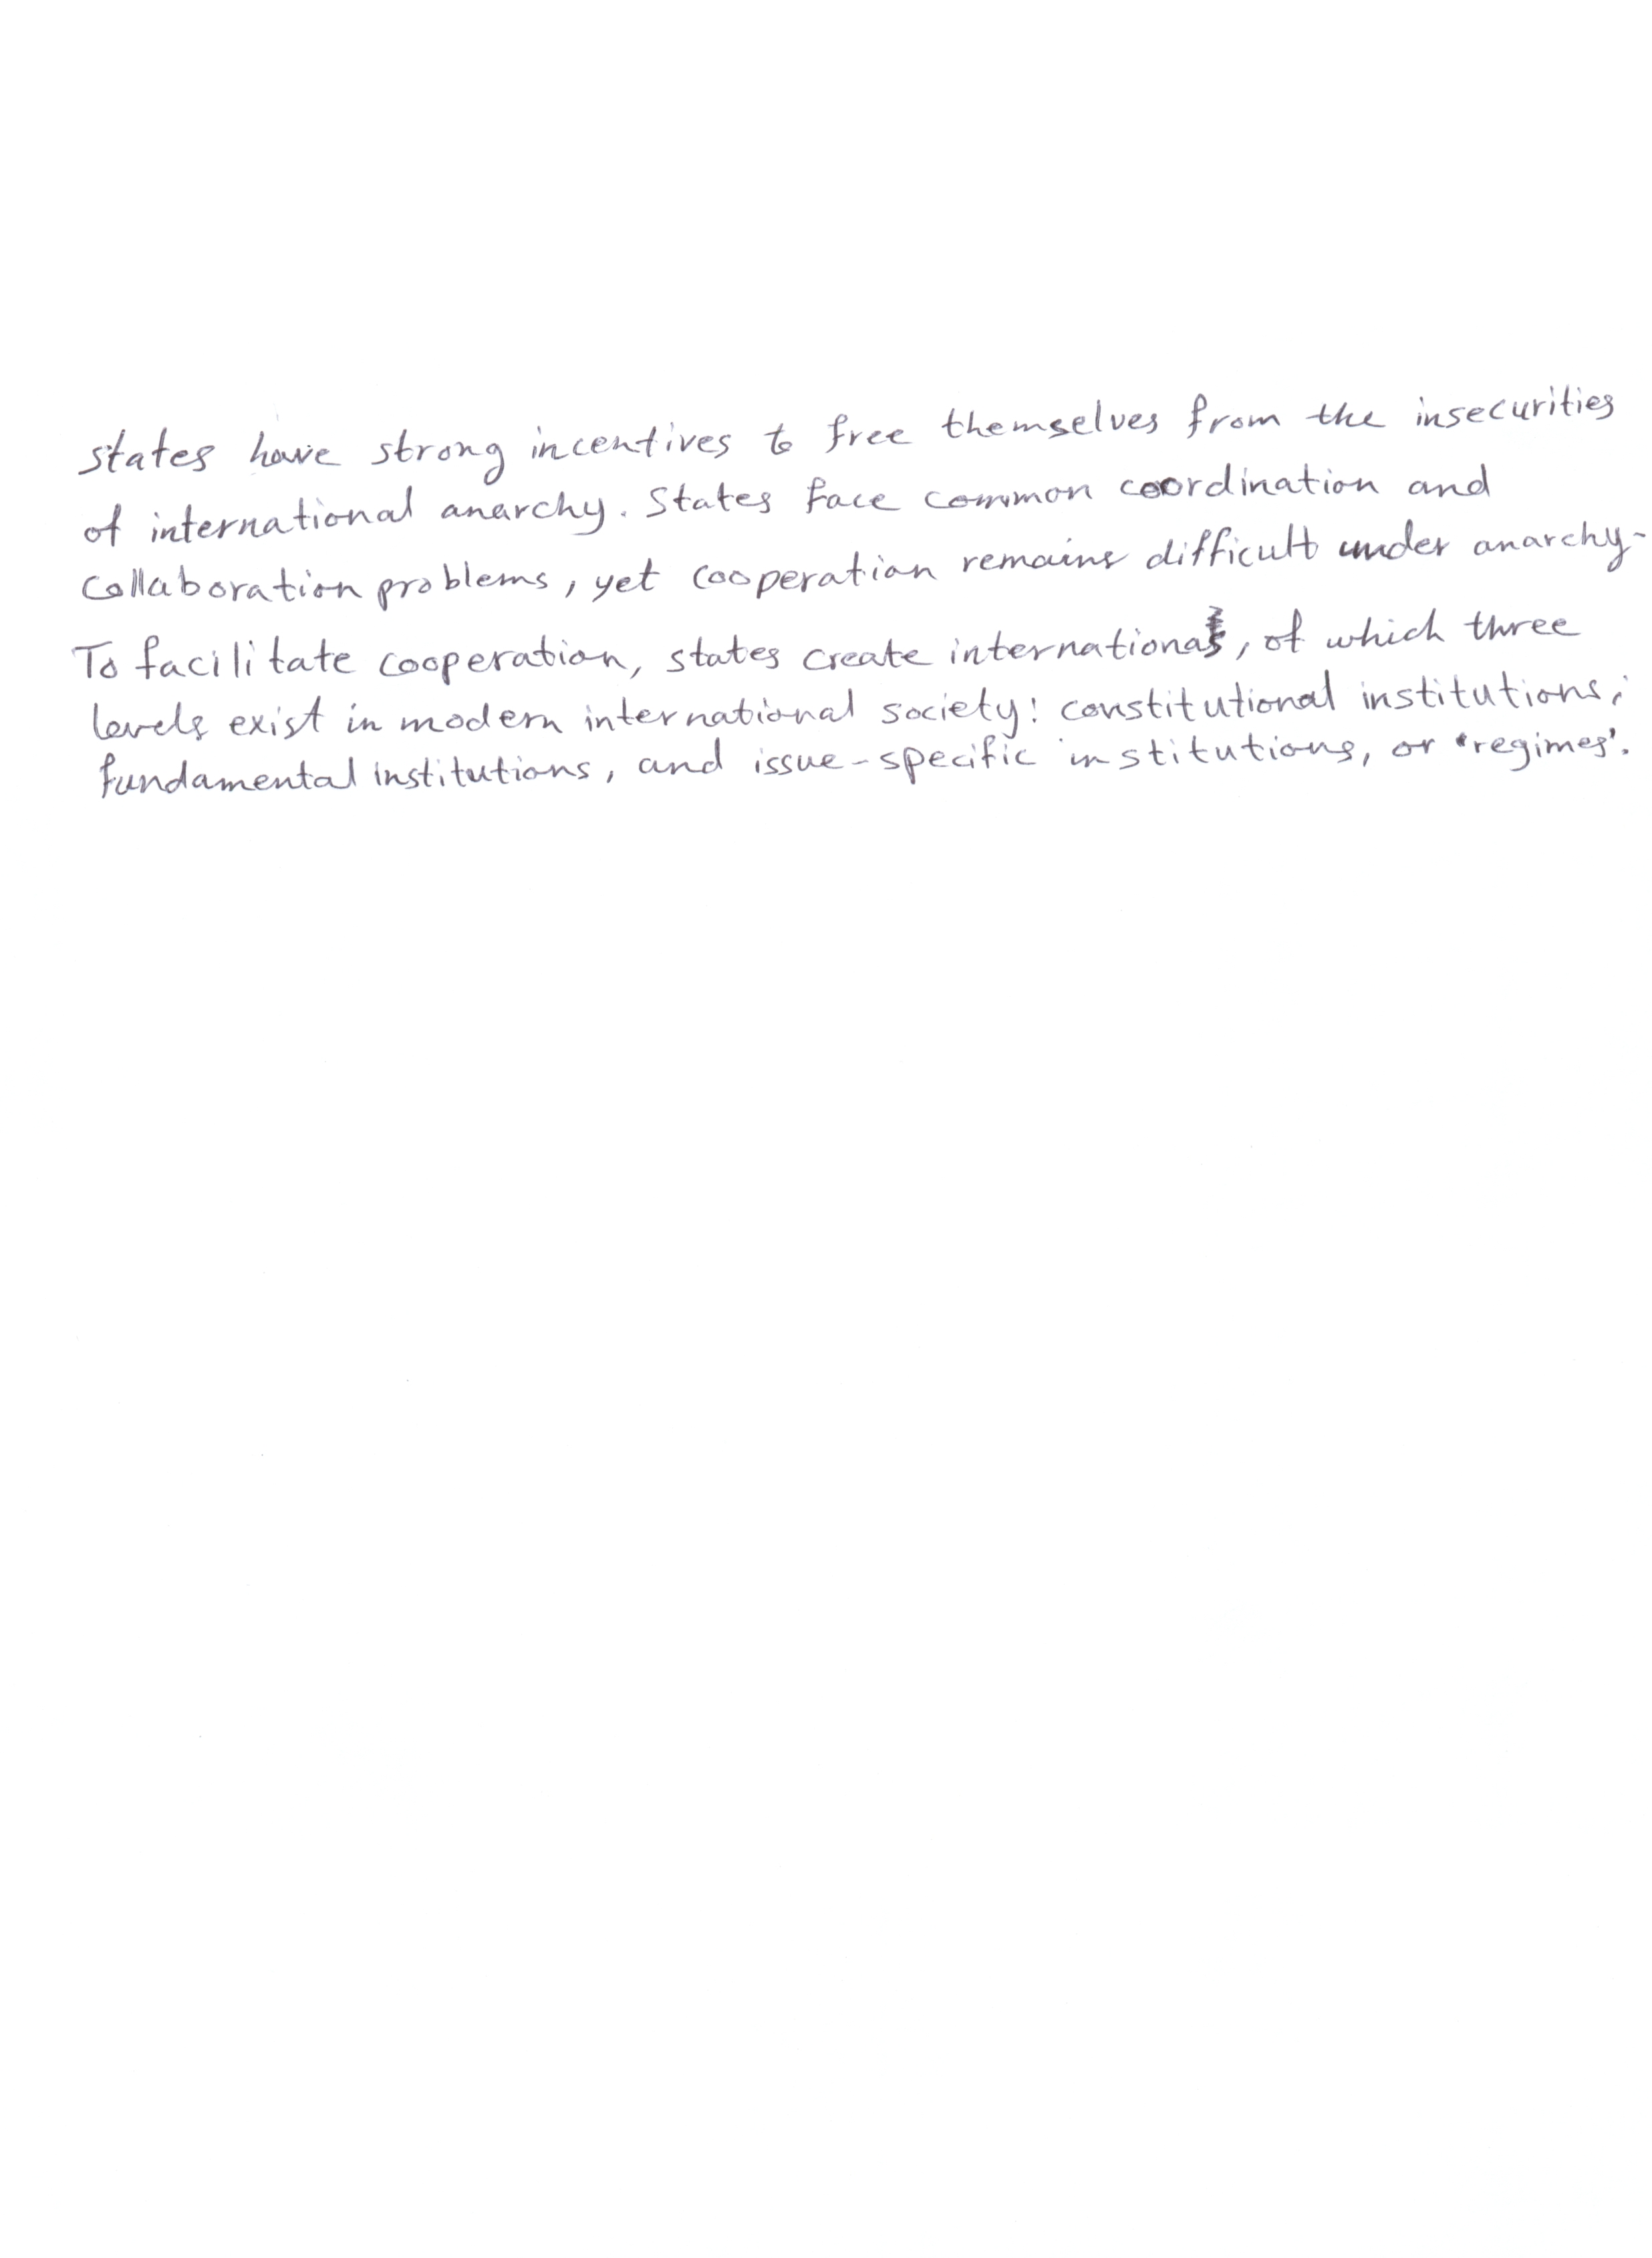 states have strong incentives to free themselves from the insecurities
of international anarchy. States face common coordination and
collaboration problems, yet cooperation remains difficult under anarchy.
To facilitate cooperation, states create internationas, of which three
levels exist in modern international society: constitutional institutions;
fundamental institutions, and issue-specific institutions, or 'regimes'.